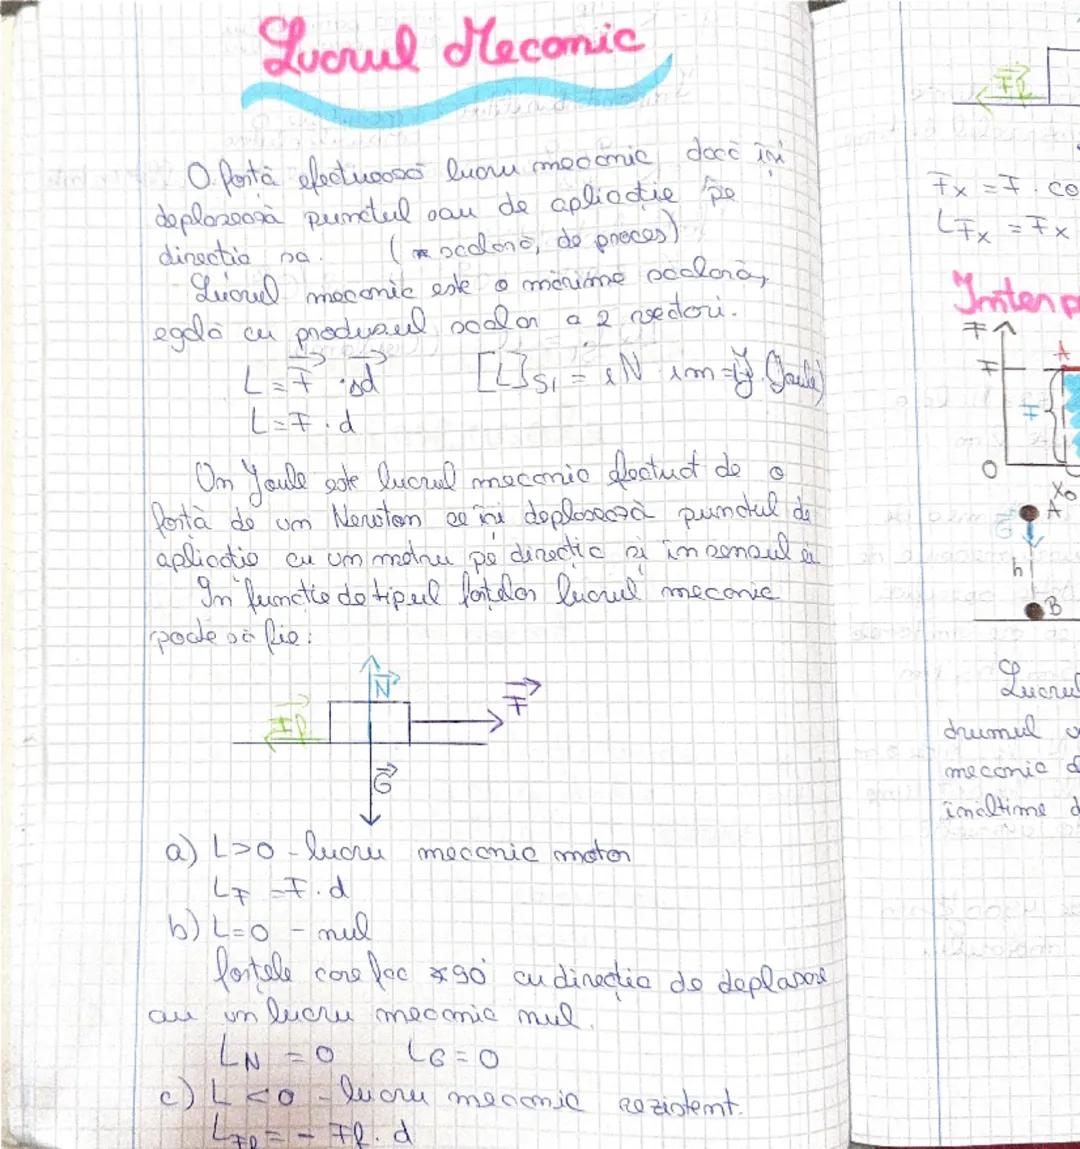 Lucrul Mecanic
O forță efectuează lucru mecanic dacă își
deplasează punctul sau de aplicație pe
direcția sa. (scalară, de proces)
Lucrul mecanic este o mărime scalară,
egală cu produsul scalar a 2 vectori.
L = F · d [L]SI = 1N · 1m = 1J (Joule)
L = F · d
Un Joule este lucrul mecanic efectuat de o
forță de un Newton ce își deplasează punctul de
aplicație cu un metru pe direcția și în sensul ei
În funcție de tipul forțelor lucrul mecanic
poate să fie:
N
F
Ff
G
a) L>0 - lucru mecanic motor
LF = F · d
b) L=0 - nul
forțele care fac ∢90° cu direcția de deplasare
au un lucru mecanic nul.
LN = 0 LG = 0
c) L<0 - lucru mecanic rezistent.
LFf = - Ff · d
Ff
Fx = F · co
LFx = Fx
Interp
F
A
F
F
0
x0
A
G
h
B
Lucrul
drumul
mecanic d
înălțime d